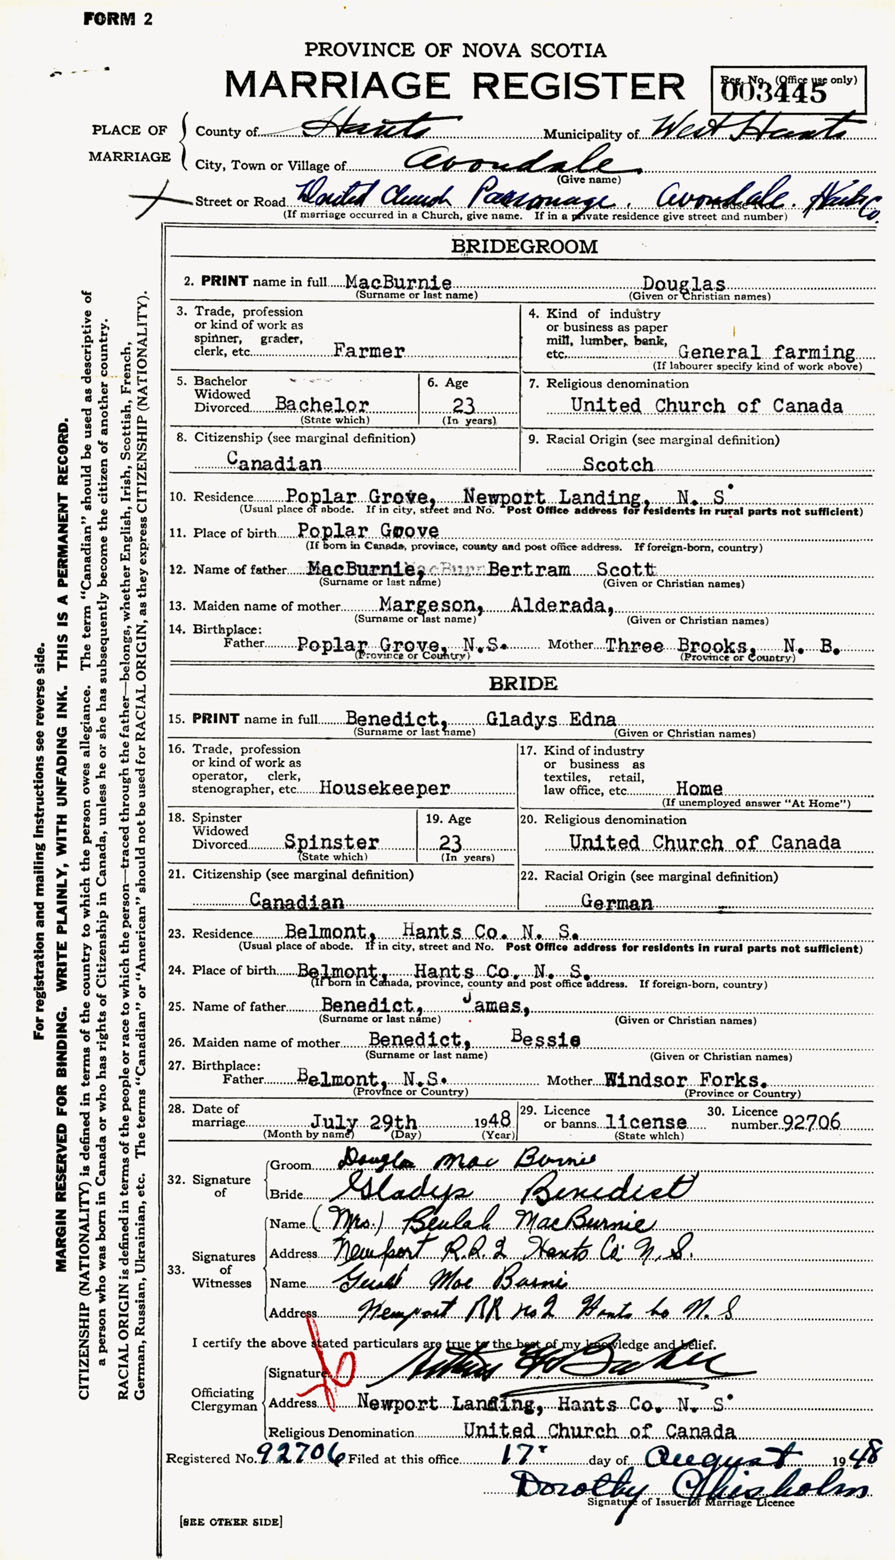 FORM 2
PROVINCE OF NOVA SCOTIA
MARRIAGE REGISTER
Reg. No. (Office use only)
003445
PLACE OF MARRIAGE
County of Hants Municipality of West Hants
City, Town or Village of Avondale
(Give name)
Street or Road United Church Parsonage, Avondale. Hants Co.
(If marriage occurred in a Church, give name. If in a private residence give street and number)
For registration and mailing instructions see reverse side.
MARGIN RESERVED FOR BINDING. WRITE PLAINLY, WITH UNFADING INK. THIS IS A PERMANENT RECORD.
CITIZENSHIP (NATIONALITY) is defined in terms of the country to which the person owes allegiance. The term "Canadian" should be used as descriptive of
a person who was born in Canada or who has rights of Citizenship in Canada, unless he or she has subsequently become the citizen of another country.
RACIAL ORIGIN is defined in terms of the people or race to which the person—traced through the father—belongs, whether English, Irish, Scottish, French,
German, Russian, Ukrainian, etc. The terms "Canadian" or "American" should not be used for RACIAL ORIGIN, as they express CITIZENSHIP (NATIONALITY).
BRIDEGROOM
2. PRINT name in full MacBurnie Douglas
(Surname or last name) (Given or Christian names)
3. Trade, profession
or kind of work as
spinner, grader,
clerk, etc. Farmer
4. Kind of industry
or business as paper
mill, lumber, bank,
etc. General farming
(If labourer specify kind of work above)
5. Bachelor
Widowed
Divorced Bachelor
(State which)
6. Age
23
(In years)
7. Religious denomination
United Church of Canada
8. Citizenship (see marginal definition)
Canadian
9. Racial Origin (see marginal definition)
Scotch
10. Residence Poplar Grove, Newport Landing, N. S.
(Usual place of abode. If in city, street and No. Post Office address for residents in rural parts not sufficient)
11. Place of birth Poplar Grove
(If born in Canada, province, county and post office address. If foreign-born, country)
12. Name of father MacBurnie, Bertram Scott
(Surname or last name) (Given or Christian names)
13. Maiden name of mother Margeson, Alderada,
(Surname or last name) (Given or Christian names)
14. Birthplace:
Father Poplar Grove, N.S. Mother Three Brooks, N. B.
(Province or Country) (Province or Country)
BRIDE
15. PRINT name in full Benedict, Gladys Edna
(Surname or last name) (Given or Christian names)
16. Trade, profession
or kind of work as
operator, clerk,
stenographer, etc. Housekeeper
17. Kind of industry
or business as
textiles, retail,
law office, etc. Home
(If unemployed answer "At Home")
18. Spinster
Widowed
Divorced Spinster
(State which)
19. Age
23
(In years)
20. Religious denomination
United Church of Canada
21. Citizenship (see marginal definition)
Canadian
22. Racial Origin (see marginal definition)
German
23. Residence Belmont, Hants Co. N. S.
(Usual place of abode. If in city, street and No. Post Office address for residents in rural parts not sufficient)
24. Place of birth Belmont, Hants Co. N. S.
(If born in Canada, province, county and post office address. If foreign-born, country)
25. Name of father Benedict, James,
(Surname or last name) (Given or Christian names)
26. Maiden name of mother Benedict, Bessie
(Surname or last name) (Given or Christian names)
27. Birthplace:
Father Belmont, N.S. Mother Windsor Forks.
(Province or Country) (Province or Country)
28. Date of
marriage July 29th 1948
(Month by name) (Day) (Year)
29. Licence
or banns license
(State which)
30. Licence
number 92706
32. Signature of
Groom Douglas MacBurnie
Bride Gladys Benedict
33. Signatures of Witnesses
Name (Mrs.) Beulah MacBurnie
Address Newport R.R.2 Hants Co. N.S.
Name MacBurnie
Address Newport RR no2 Hants Co N.S
I certify the above stated particulars are true to the best of my knowledge and belief.
Officiating Clergyman
Signature
Address Newport Landing, Hants Co. N. S.
Religious Denomination United Church of Canada
Registered No. 92706 Filed at this office 17 day of August 1948
Dorothy Chisholm
Signature of Issuer of Marriage Licence
[SEE OTHER SIDE]